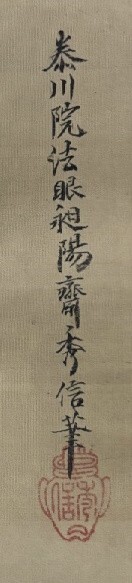 泰川院法眼昶陽齋秀信筆